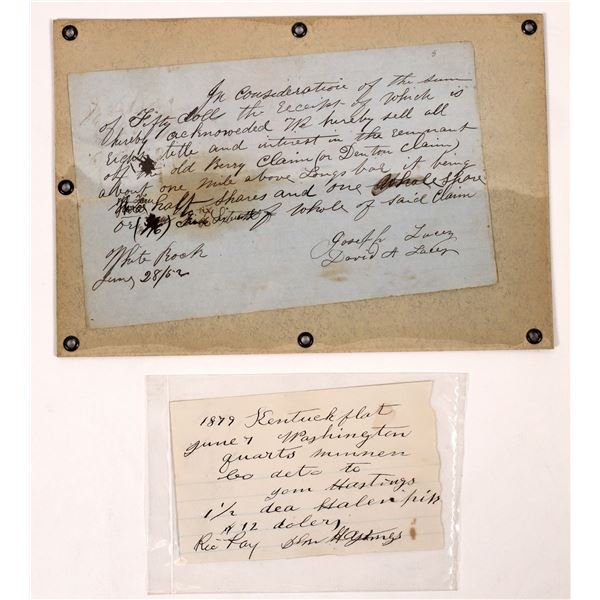 In consideration of the sum
of Fifty Doll the Receipt of which is
hereby acknoweded We hereby sell all
Right title and interest in the remnant
of old Berry Claim (or Denton Claim)
about one Mile above Longs bar it being
half Shares and one Whole share
or of whole of said Claim
White Rock
June 28/52
Joseph Lacey
David A Lacey
1879 Kentuckflat
June 7 Washington
quarts minnen
Co dets to
gom Hastings
1 1/2 dea Halen pip
$ 12 dolers
Rec Pay Hastings